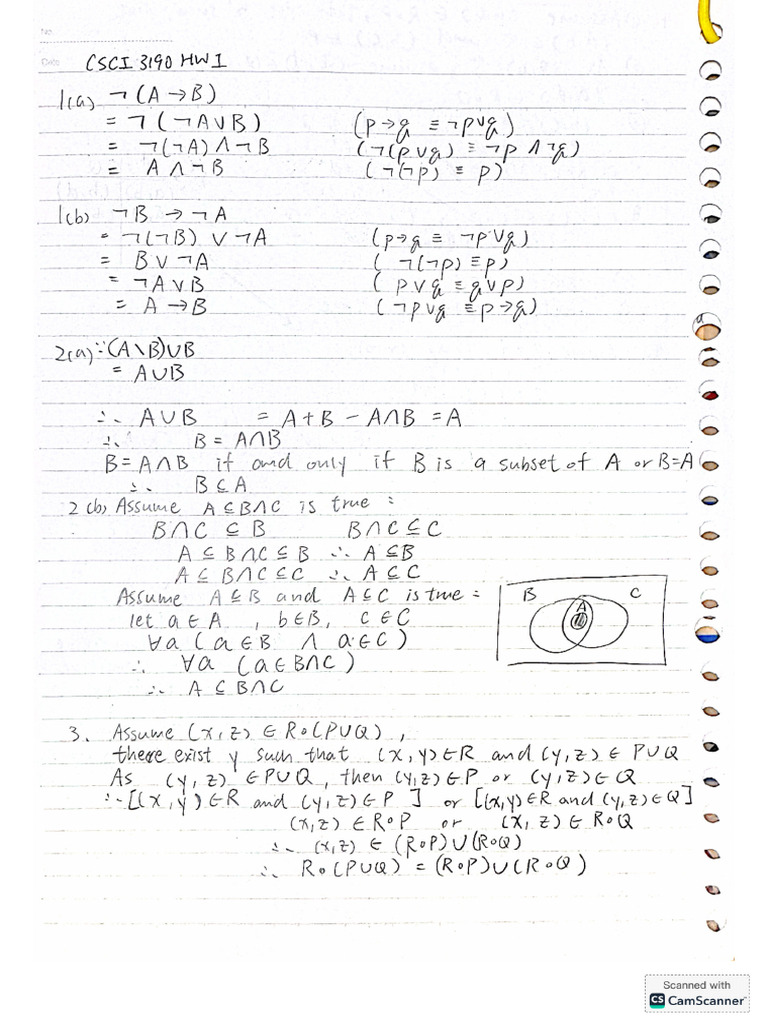 No.
Date
CSCI 3190 HW1
1(a) ¬(A→B)
= ¬(¬A∨B) (p→q ≡ ¬p∨q)
= ¬(¬A)∧¬B (¬(p∨q) ≡ ¬p∧¬q)
= A∧¬B (¬(¬p) ≡ p)
1(b) ¬B → ¬A
= ¬(¬B) ∨ ¬A (p→q ≡ ¬p∨q)
= B∨¬A (¬(¬p) ≡ p)
= ¬A∨B (p∨q ≡ q∨p)
= A→B (¬p∨q ≡ p→q)
2(a) ∵ (A\B)∪B
= A∪B
∴ A∪B = A+B − A∩B = A
∴ B = A∩B
B = A∩B if and only if B is a subset of A or B=A
∴ B⊆A
2(b) Assume A⊆B∩C is true :
B∩C ⊆ B B∩C⊆C
A⊆B∩C⊆B ∴ A⊆B
A⊆B∩C⊆C ∴ A⊆C
Assume A⊆B and A⊆C is true :
let a∈A , b∈B, c∈C
∀a (a∈B ∧ a∈C)
∴ ∀a (a∈B∩C)
∴ A⊆B∩C
B C
A
3. Assume (x,z) ∈ R∘(P∪Q) ,
there exist y such that (x,y)∈R and (y,z)∈ P∪Q
As (y,z) ∈P∪Q, then (y,z)∈P or (y,z)∈Q
∴ [(x,y)∈R and (y,z)∈P ] or [(x,y)∈R and (y,z)∈Q]
(x,z) ∈R∘P or (x,z)∈R∘Q
∴ (x,z) ∈ (R∘P)∪(R∘Q)
∴ R∘(P∪Q) = (R∘P)∪(R∘Q)
Scanned with
CS CamScanner